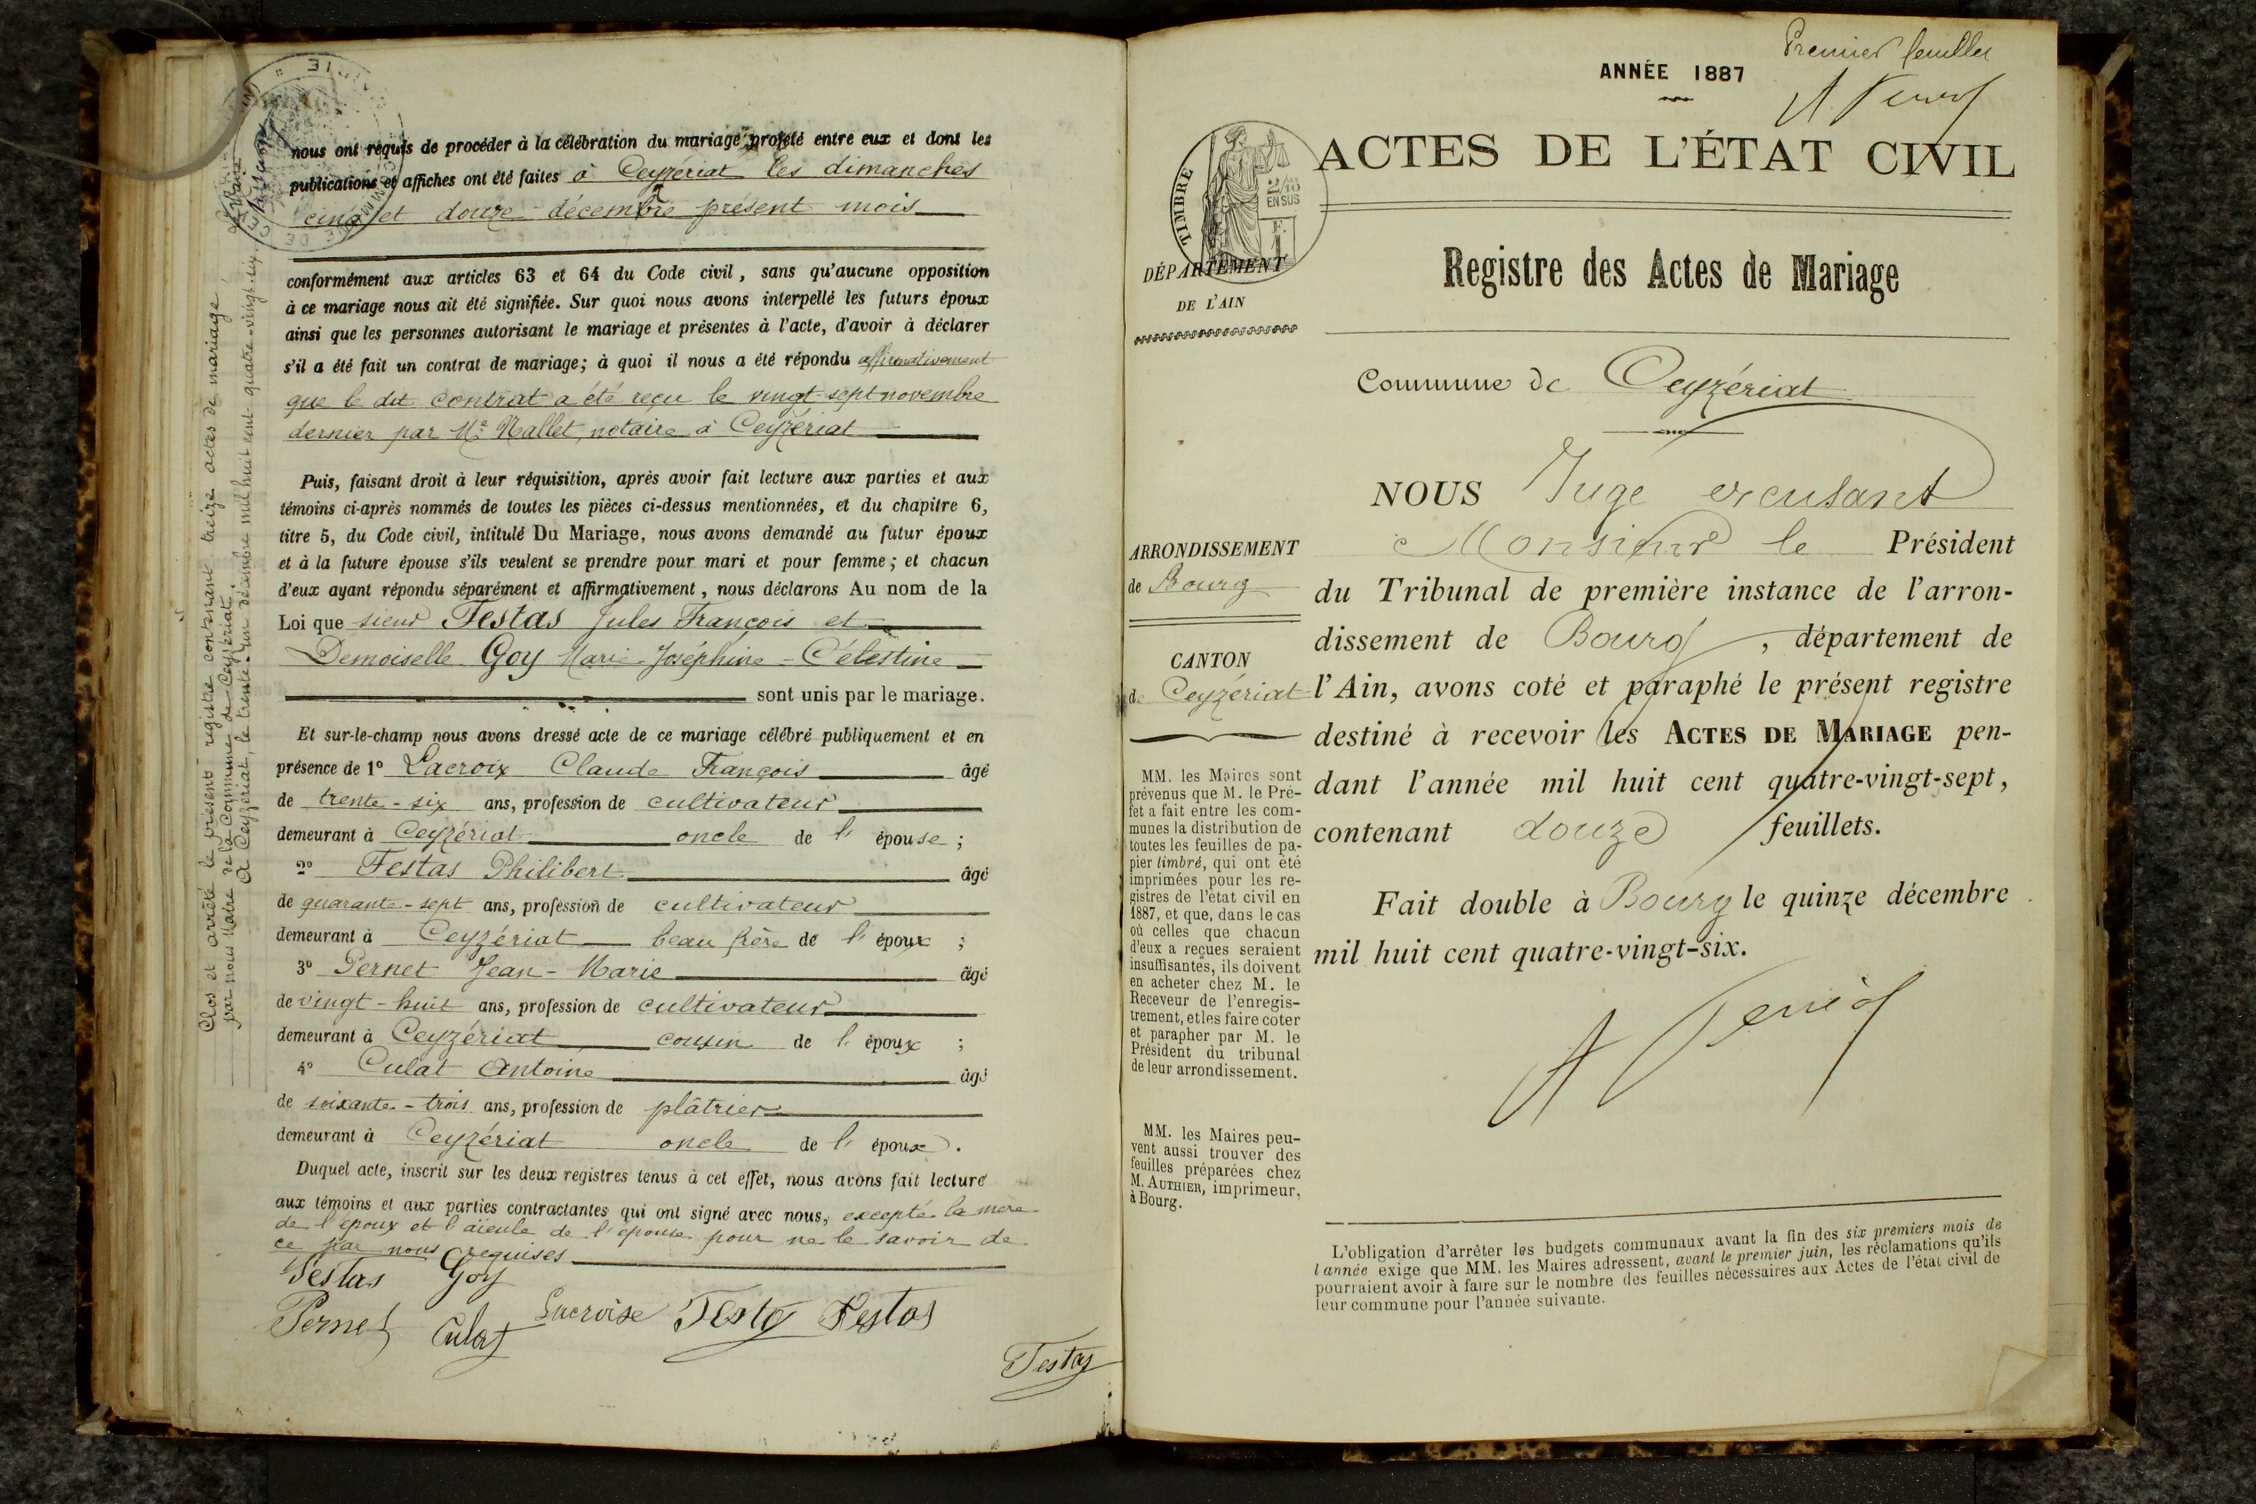 nous ont requis de procéder à la célébration du mariage projeté entre eux et dont les
publications et affiches ont été faites à Ceyzériat les dimanches
cinq et douze décembre présent mois
conformément aux articles 63 et 64 du Code civil, sans qu'aucune opposition
à ce mariage nous ait été signifiée. Sur quoi nous avons interpellé les futurs époux
ainsi que les personnes autorisant le mariage et présentes à l'acte, d'avoir à déclarer
s'il a été fait un contrat de mariage; à quoi il nous a été répondu affirmativement
que le dit contrat a été reçu le vingt-sept novembre
dernier par Me Mallet, notaire à Ceyzériat
Puis, faisant droit à leur réquisition, après avoir fait lecture aux parties et aux
témoins ci-après nommés de toutes les pièces ci-dessus mentionnées, et du chapitre 6,
titre 5, du Code civil, intitulé Du Mariage, nous avons demandé au futur époux
et à la future épouse s'ils veulent se prendre pour mari et pour femme; et chacun
d'eux ayant répondu séparément et affirmativement, nous déclarons Au nom de la
Loi que sieur Testas Jules François et
Demoiselle Goy Marie-Joséphine-Célestine
sont unis par le mariage.
Et sur-le-champ nous avons dressé acte de ce mariage célébré publiquement et en
présence de 1° Lacroix Claude François âgé
de trente-six ans, profession de cultivateur
demeurant à Ceyzériat oncle de l' épouse;
2° Testas Philibert âgé
de quarante-sept ans, profession de cultivateur
demeurant à Ceyzériat beau frère de l' époux;
3° Pernet Jean-Marie âgé
de vingt-huit ans, profession de cultivateur
demeurant à Ceyzériat cousin de l' époux;
4° Culat Antoine âgé
de soixante-trois ans, profession de plâtrier
demeurant à Ceyzériat oncle de l' époux.
Duquel acte, inscrit sur les deux registres tenus à cet effet, nous avons fait lecture
aux témoins et aux parties contractantes qui ont signé avec nous, excepté la mère
de l'époux et l'aïeule de l'épouse pour ne le savoir de
ce par nous requises
Testas Goy
Pernet Culat Lacroise Testas Testas
Testas
Clos et arrêté le présent registre contenant treize actes de mariage,
par nous Maire de la Commune de Ceyzériat
A Ceyzériat, le trente-un décembre mil huit cent quatre-vingt-six.
Le Maire
Premier feuillet
ANNÉE 1887
ACTES DE L'ÉTAT CIVIL
TIMBRE
2/10
EN SUS
F.
1
DÉPARTEMENT
DE L'AIN
Registre des Actes de Mariage
Commune de Ceyzériat
ARRONDISSEMENT
de Bourg
CANTON
de Ceyzériat
MM. les Maires sont
prévenus que M. le Pré-
fet a fait entre les com-
munes la distribution de
toutes les feuilles de pa-
pier timbré, qui ont été
imprimées pour les re-
gistres de l'état civil en
1887, et que, dans le cas
où celles que chacun
d'eux a reçues seraient
insuffisantes, ils doivent
en acheter chez M. le
Receveur de l'enregis-
trement, et les faire coter
et parapher par M. le
Président du tribunal
de leur arrondissement.
MM. les Maires peu-
vent aussi trouver des
feuilles préparées chez
M. AUTHIER, imprimeur,
à Bourg.
NOUS Juge excusant
Monsieur le Président
du Tribunal de première instance de l'arron-
dissement de Bourg, département de
l'Ain, avons coté et paraphé le présent registre
destiné à recevoir les ACTES DE MARIAGE pen-
dant l'année mil huit cent quatre-vingt-sept,
contenant douze feuillets.
Fait double à Bourg le quinze décembre
mil huit cent quatre-vingt-six.
L'obligation d'arrêter les budgets communaux avant la fin des six premiers mois de
l'année exige que MM. les Maires adressent, avant le premier juin, les réclamations qu'ils
pourraient avoir à faire sur le nombre des feuilles nécessaires aux Actes de l'état civil de
leur commune pour l'année suivante.